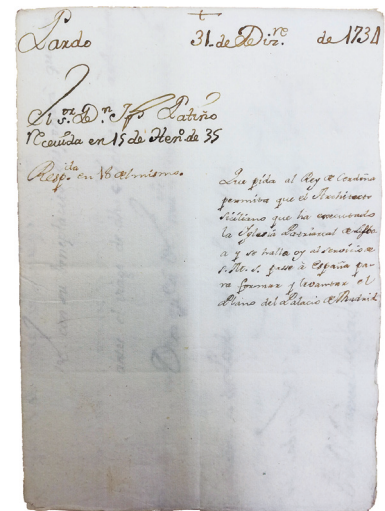 Pardo 31. de Diz.re de 1734
El s.or D.n Jph Patiño
Recivida en 15 de Hen.o de 35
Resp.da en 18 del mismo.
Que pida al Rey de Cerdeña
permita que el Architecto
Siciliano que ha executado
la Iglesia Patriarcal de
a y se halla oy al servicio de
S. M. S. pase à España pa
ra formar y levantar el
Plano del Palacio de Madrid